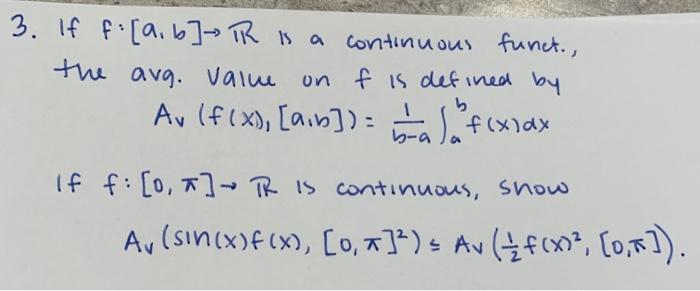 3. If f:[a,b]→ℝ is a continuous funct.,
the avg. value on f is defined by
Av (f(x), [a,b]) = 1/(b-a) ∫_a^b f(x)dx
If f:[0,π]→ℝ is continuous, show
Av (sin(x)f(x), [0,π]²) ≤ Av (½f(x)², [0,π]).